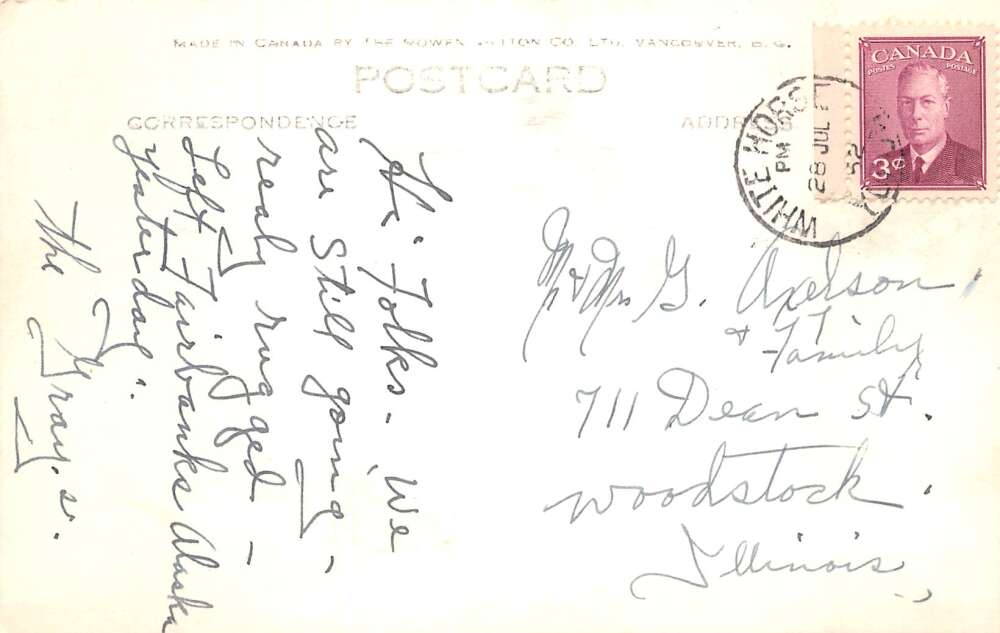 MADE IN CANADA BY THE GOWEN SUTTON CO. LTD. VANCOUVER, B.C.
POSTCARD
CORRESPONDENCE
ADDRESS
CANADA
POSTES POSTAGE
3¢
WHITE HORSE
PM
28 JUL
52
Hi Folks - We
are Still going -
realy rugged -
Left Fairbanks Alaska
yesterday.
The Gray.s.
Mr & Mrs G. Axelson
& Family
711 Dean St.
Woodstock
Illinois